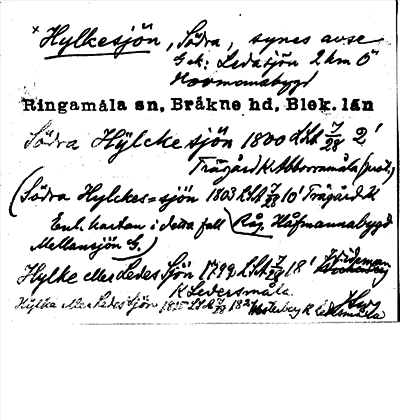 x Hylkesjön, Södra, synes avse
G ek: Ledasjön 2 km Ö
Hovmansbygd
Ringamåla sn, Bräkne hd, Blek. län
Södra Hÿlcke sjön 1800 LSA 7/28 2'
Trägård K Abborramåla
(Södra Hylckes=sjön 1803 LSA 7/28 10' Trägård K
Enl. kartan i detta fall Råg. Håfmannabygd
Mellansjön G.)
Hylke eller Ledes Sjön 1799 LSA 7/29 18'
K Ledersmåla
Hylka eller Ledes Sjön LSA 7/29 18 Westerberg K Ledesmåla